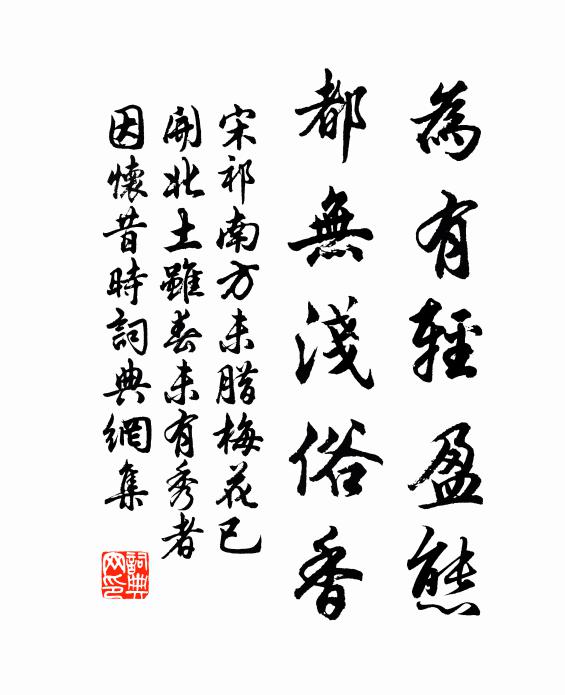 為有輕盈態
都無淺俗香
宋祁南方未腊梅花已
開北土雖春未有秀者
因懷昔時詞典網集
詞典网印